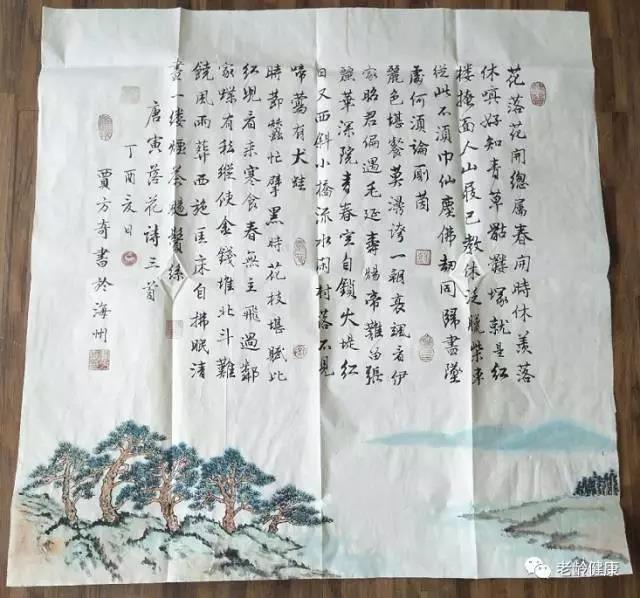 花落花開總屬春開時休羨落
休嗔好知青草骷髏塚就是紅
樓掩面人山屐已教休泛脫柴車
從此不須巾仙塵佛劫同歸盡墜
處何須論厠茵
麗色堪餐莫漫誇一朝衰颯看伊
家昭君偏遇毛延壽煬帝難留張
麗華深院青春空自鎖大堤紅
日又西斜小橋流水閑村落不見
啼鶯有吠蛙
時節蠶忙擘黑時花枝堪賦比
紅児看来寒食春無主飛過鄰
家蝶有私縱使金錢堆北斗難
饒風雨葬西施匡床自拂眠清
晝一縷煙茶颺鬢絲
唐寅落花詩三首
丁酉夏日
賈方奇書於海州
老龄健康